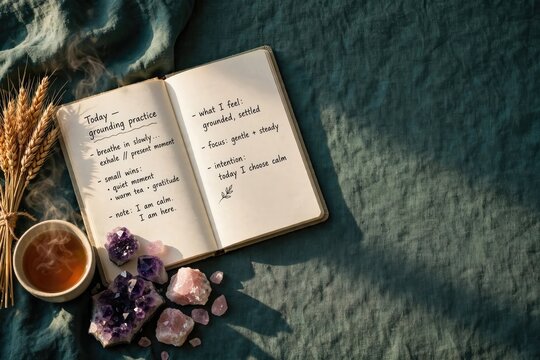 Today —
grounding practice
- breathe in slowly...
exhale // present moment
- small wins:
• quiet moment
• warm tea • gratitude
- note: I am calm.
I am here.
- what I feel:
grounded, settled
- focus: gentle + steady
- intention:
today I choose calm